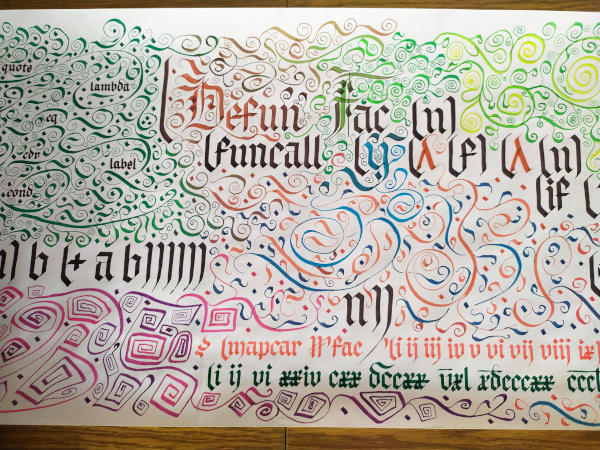 quote
lambda
eq
cdr
label
cond
(Defun Fac (n)
(funcall (y (λ (f) (λ (n)
(if (
n) b (+ a b))))))
n))
(mapcar #'fac '(i ij iij iv v vi vij viij ix
(i ij vi xxiv cxx dccxx v̅xl